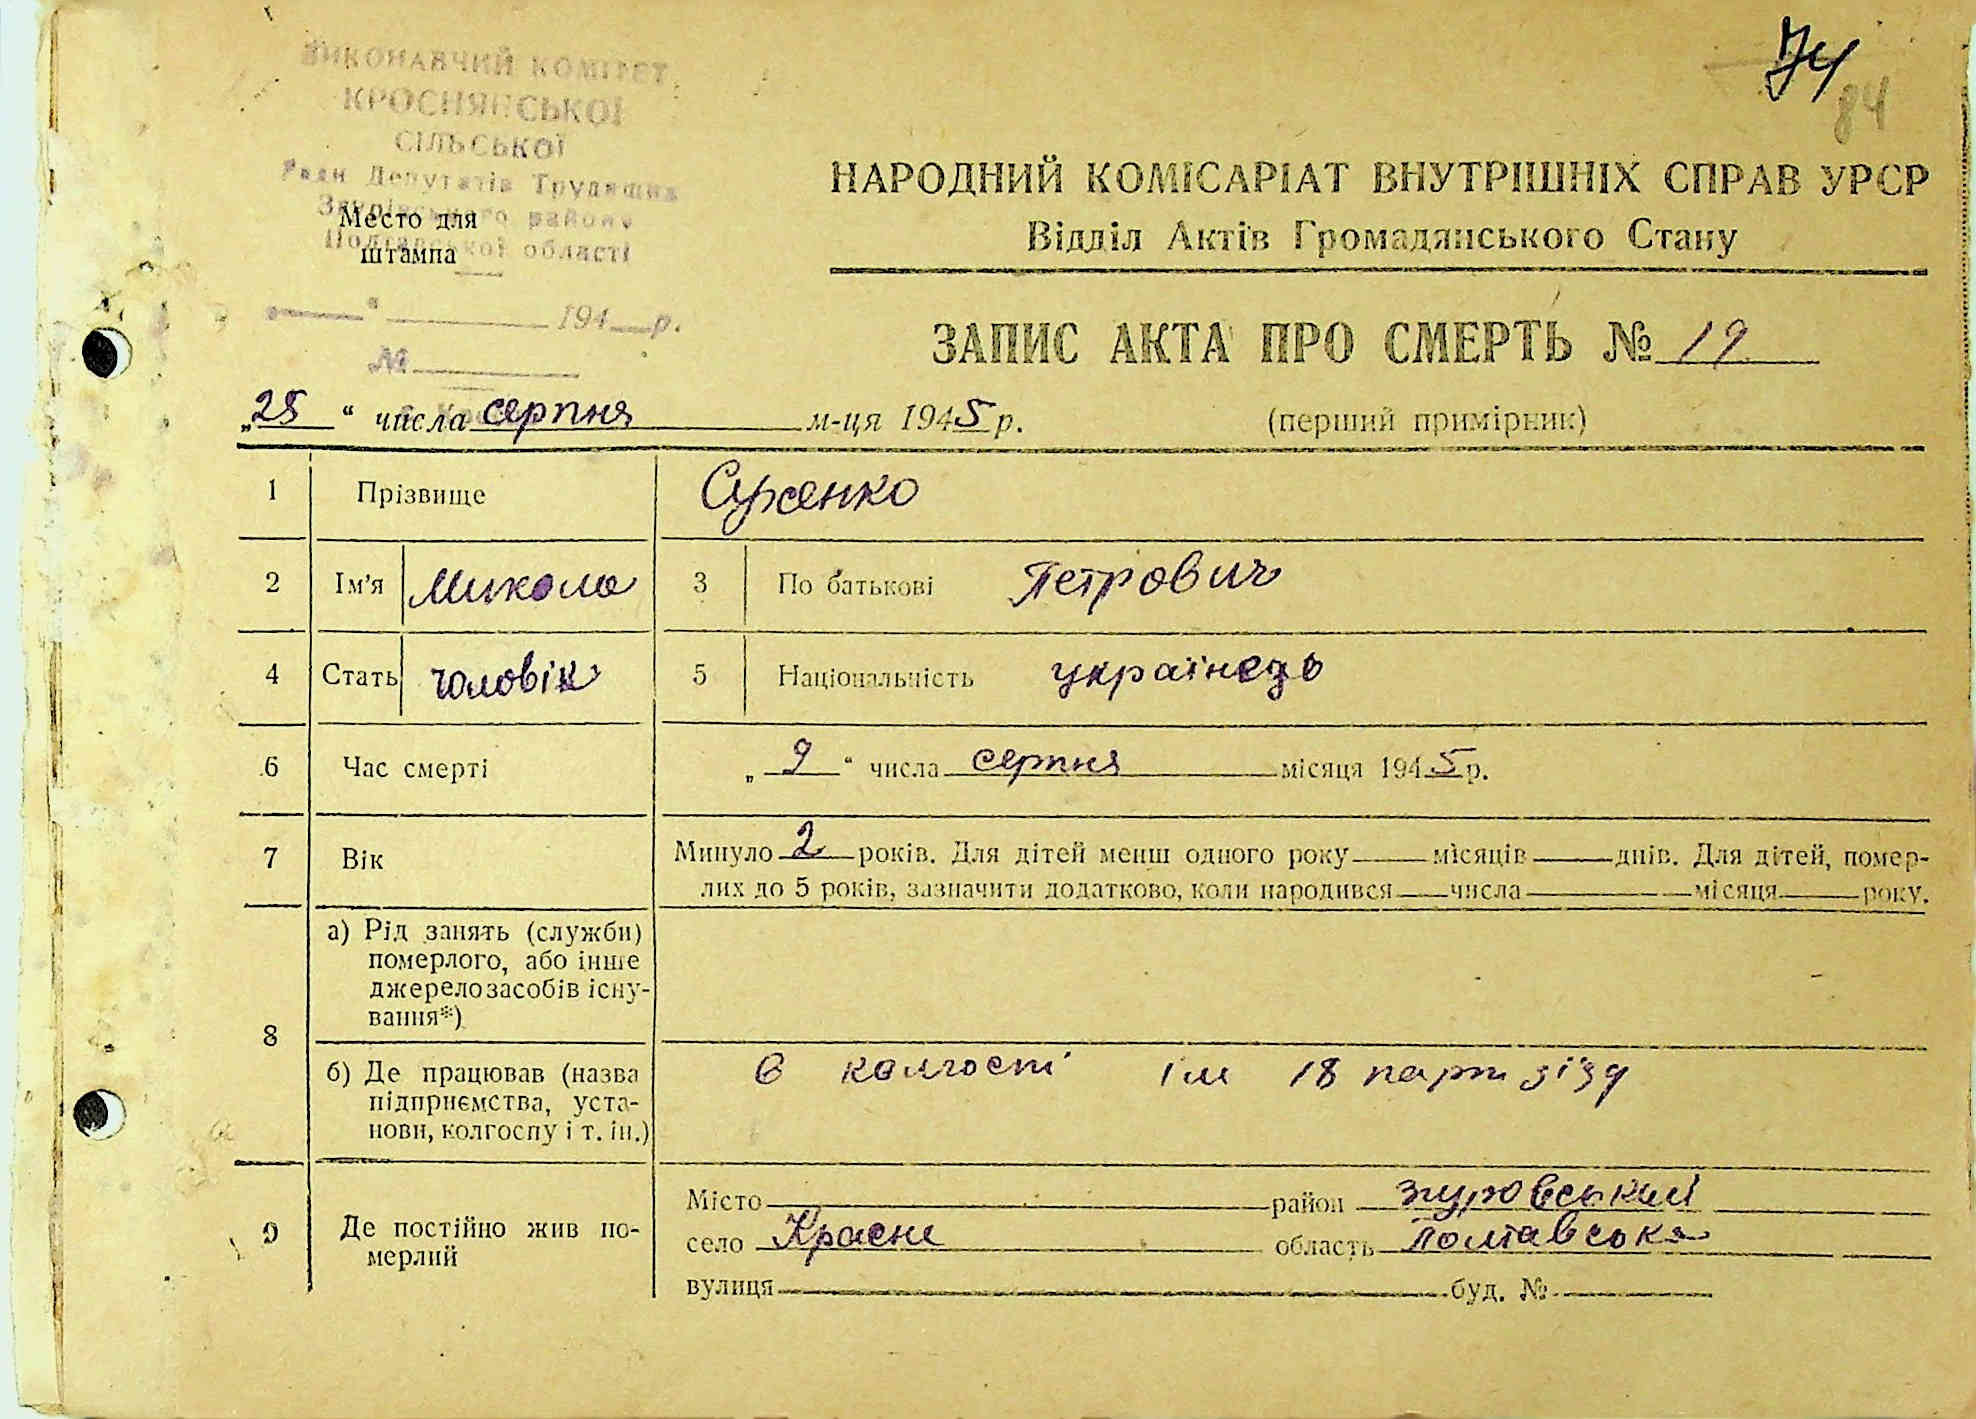 74
84
ВИКОНАВЧИЙ КОМІТЕТ
КРОСНЯНСЬКОЇ
СІЛЬСЬКОЇ
Ради Депутатів Трудящих
Згурівського району
Полтавської області
Место для
штампа
"___" ___ 194__р.
№
НАРОДНИЙ КОМІСАРІАТ ВНУТРІШНІХ СПРАВ УРСР
Відділ Актів Громадянського Стану
ЗАПИС АКТА ПРО СМЕРТЬ № 19
„25“ числа серпня м-ця 1945 р. (перший примірник)
1 Прізвище Суженко
2 Ім'я Микола 3 По батькові Петрович
4 Стать чоловік 5 Національність українець
6 Час смерті „9“ числа серпня місяця 1945 р.
7 Вік Минуло 2 років. Для дітей менш одного року___місяців___днів. Для дітей, помер-
лих до 5 років, зазначити додатково, коли народився___числа___місяця___року.
8 а) Рід занять (служби)
померлого, або інше
джерело засобів існу-
вання*)
б) Де працював (назва
підприємства, уста-
нови, колгоспу і т. ін.)
в колгоспі ім 18 парт зїзд
9 Де постійно жив по-
мерлий
Місто___район Згуровський
село Красне область Полтавська
вулиця___буд. №___